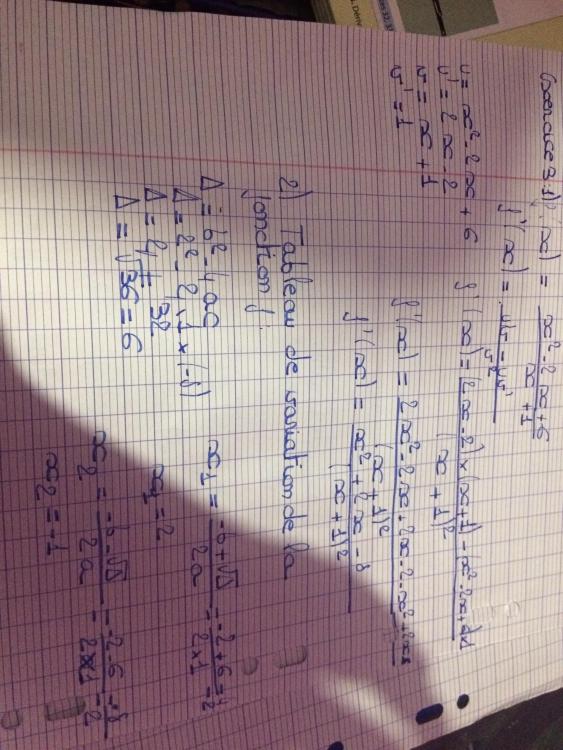 Exercice 3 1) f(x) = x² - 2x + 6 / x + 1
f'(x) = u'v - uv' / v²
u = x² - 2x + 6
u' = 2x - 2
v = x + 1
v' = 1
f'(x) = (2x - 2) × (x + 1) - (x² - 2x + 6) × 1 / (x + 1)²
f'(x) = 2x² - 2x + 2x - 2 - x² + 2x / (x + 1)²
f'(x) = x² + 2x - 8 / (x + 1)²
2) Tableau de variation de la
fonction f.
Δ = b² - 4ac
Δ = 2² - 4 × 1 × (-8)
Δ = 4 + 32
Δ = √36 = 6
x1 = -b + √Δ / 2a = -2 + 6 / 2×1 = 4 / 2
x1 = 2
x2 = -b - √Δ / 2a = -2 - 6 / 2×1 = -8 / 2
x2 = -1